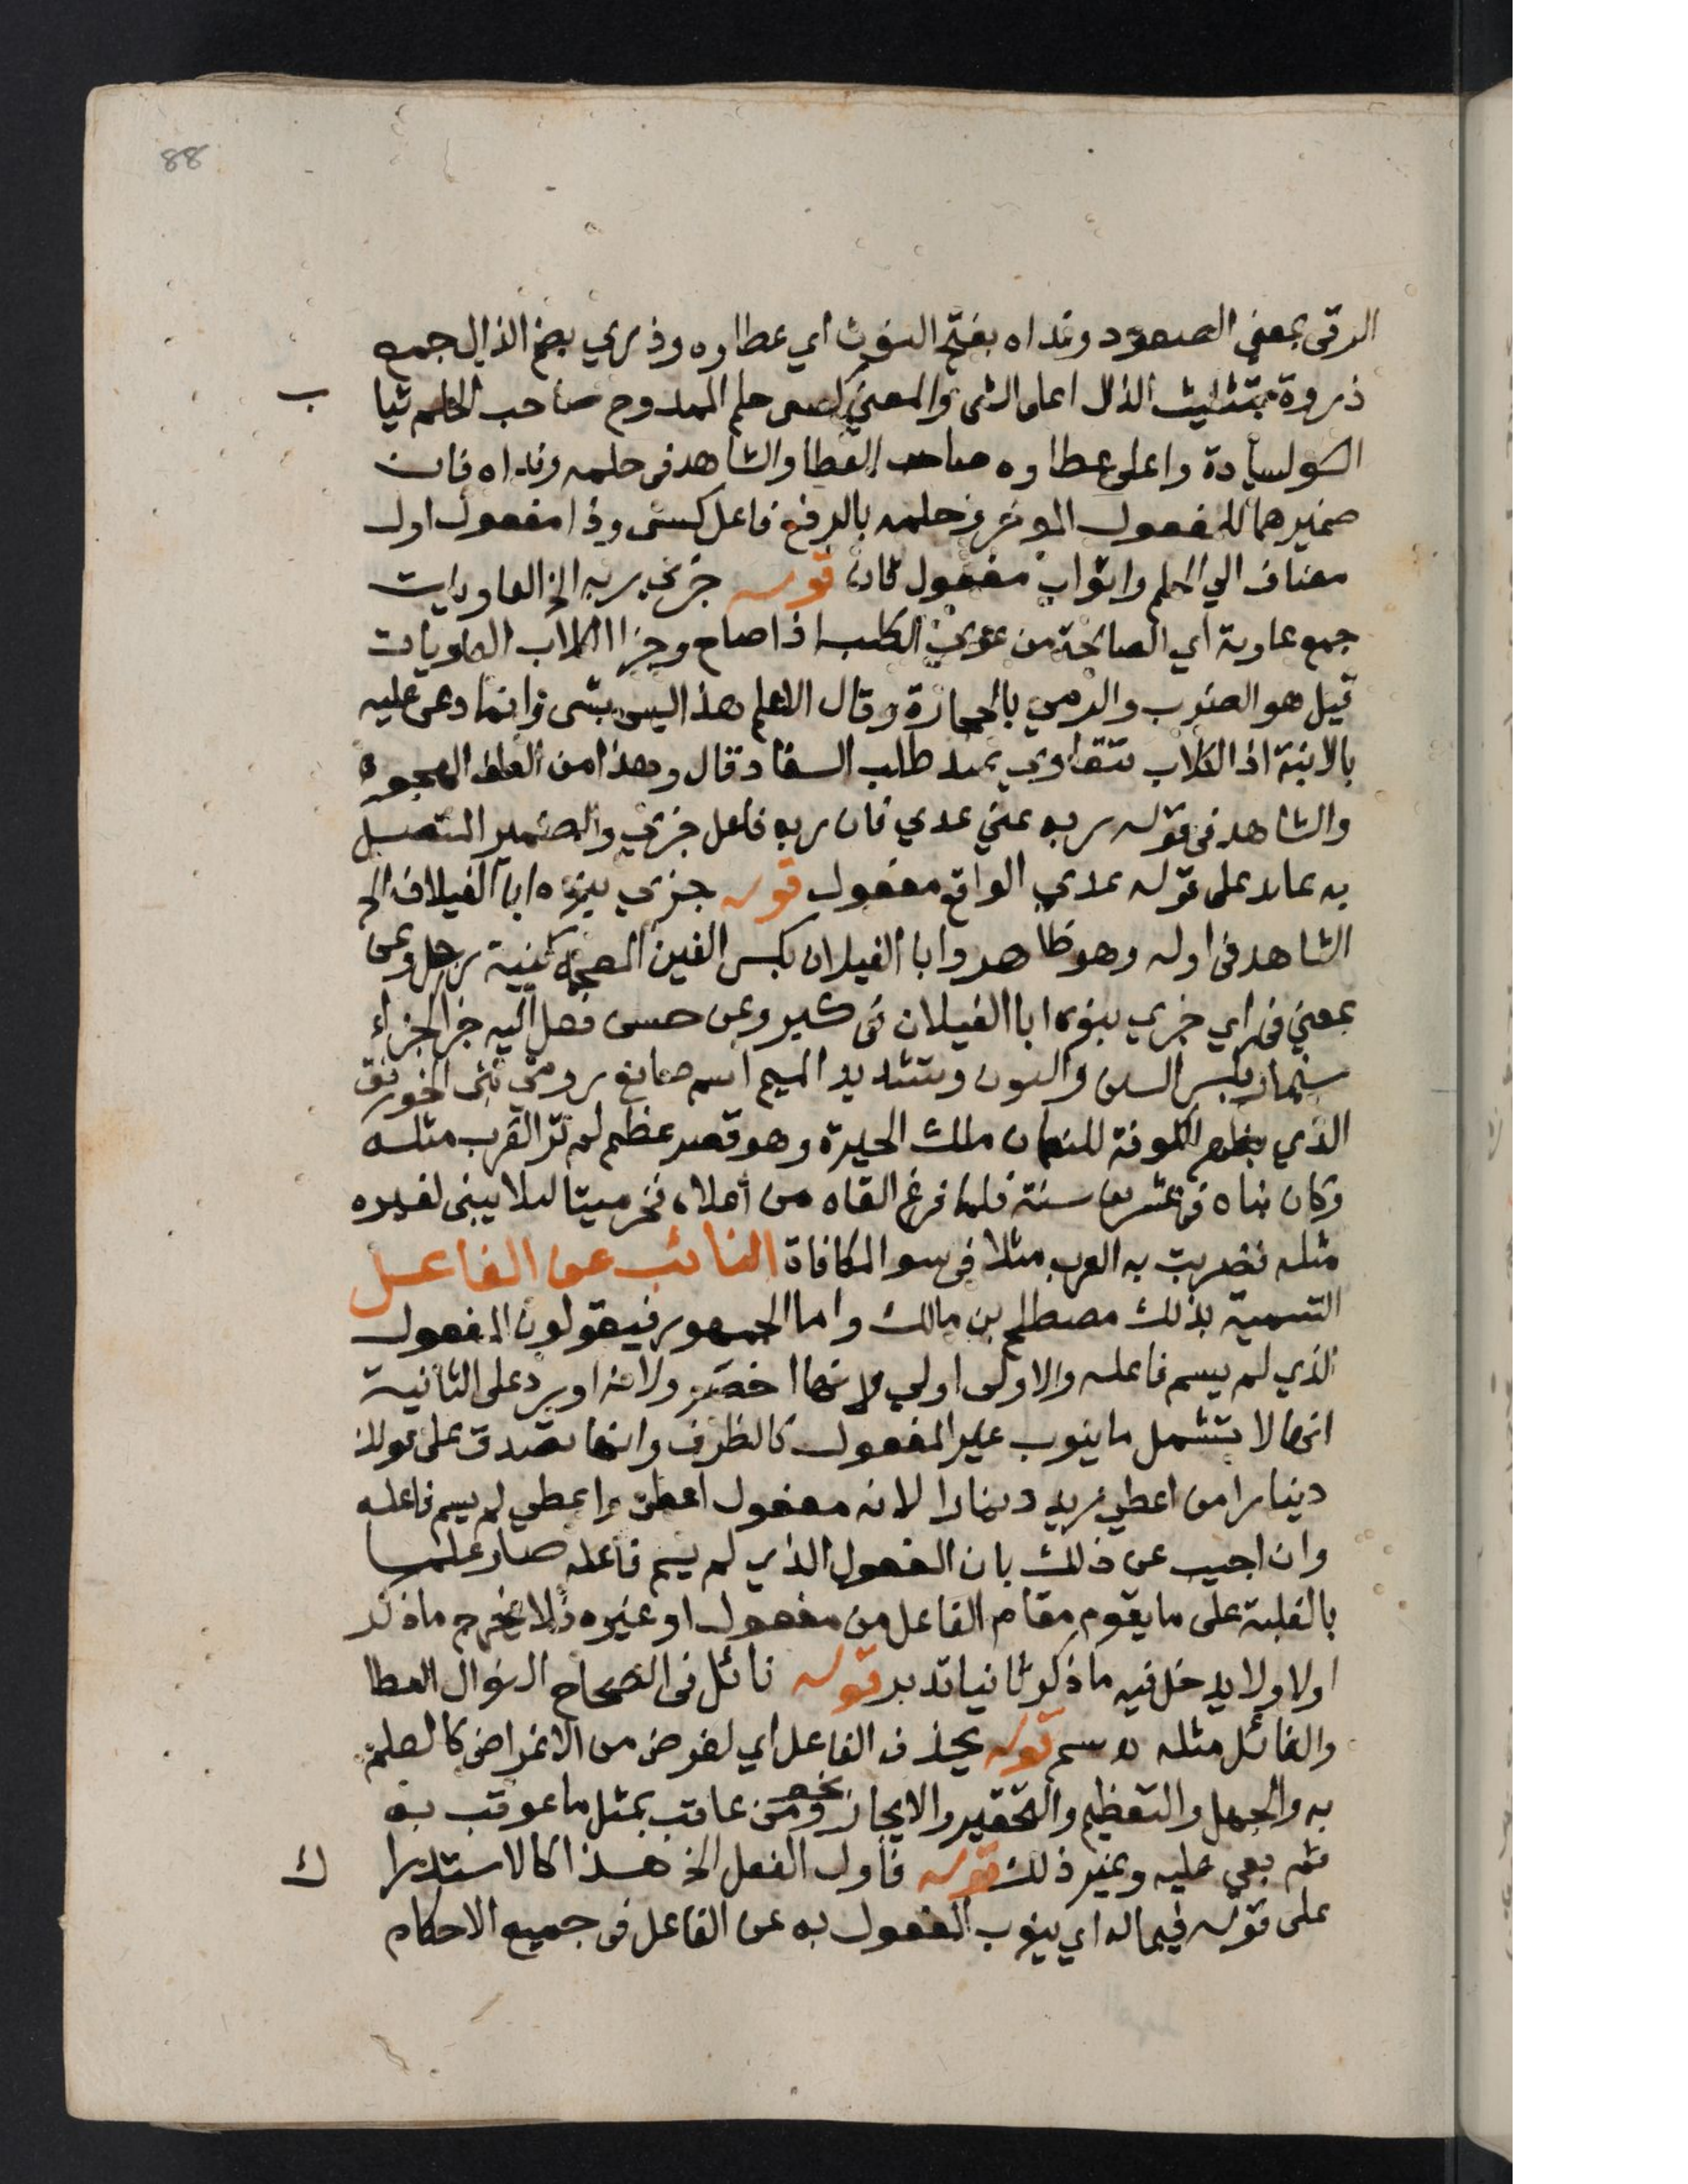 88
الرقى بمعنى الصعود ونداه بفتح النون اي عطاوه وذري بضم الذال جمع
ذروة بتثليث الذال اعلى الشي والمعنى كسى حلم الممدوح صاحب الحلم ثيا
ب
السولسيادة واعلى عطاوه صاحب العطا والشاهد في حلمه ونداه فان
ضميرهما للمفعول الموخر وحلمه بالرفع فاعل كسى وذا مفعول اول
مضاف الي الحلم واثواب مفعول ثان قوله جزى ربه الخ العاويات
جمع عاوية اي الصائحة من عوي الكلب اذا صاح وجزا الكلاب العاويات
قيل هو الضرب والرمي بالحجارة وقال الاعلم هذا ليس بشي وانما دعى عليه
بالابنة اذ الكلاب تتعاوي عند طلب السفاد قال وهذا من الطف الهجو
والشاهد في قوله ربه عني عدي فان ربه فاعل جزي والضمير المتصل
به عائد على قوله عدي الواقع مفعول قوله جزي بنوه ابا الغيلان الخ
الشاهد في اوله وهو ظاهر وابا الغيلان بكسر الغين المعجمة كنية رجل وعن
بمعنى في اي جزي بنوه ابا الغيلان في كبر وعن حسن فعل اليه جزا لجزاء
سنمار بكسر السين والنون وتشديد الميم اسم صانع رومي بنى الخورنق
الذي بظهر الكوفة للنعمان ملك الحيرة وهو قصر عظيم لم تر العرب مثله
وكان بناه في عشرين سنة فلما فرغ القاه من اعلاه فخر ميتا لئلا يبنى لغيره
مثله فضربت به العرب مثلا في سو المكافاة النائب عن الفاعل
التسمية بذلك مصطلح بن مالك واما الجمهور فيقولون المفعول
الذي لم يسم فاعله والاولى اولي لانها اخصر ولانه اورد على الثانية
انها لا تشمل ما ينوب غير المفعول كالظرف وانها تصدق على قولك
دينارا من اعطي زيد دينارا لانه مفعول اعطي واعطي لم يسم فاعله
وان اجيب عن ذلك بان المفعول الذي لم يسم فاعله صار علما
بالغلبة على ما يقوم مقام الفاعل من مفعول او غيره فلا يخرج ما ذكر
اولا ولا يدخل فيه ما ذكر ثانيا تدبر قوله نائل في الصحاح النوال العطا
والنائل مثله قوله بحذف الفاعل اي لغرض من الاغراض كالعلم
به والجهل والتعظيم والتحقير والايجاز نحو ومن عاقب بمثل ما عوقب به
ثم بغي عليه وغير ذلك قوله فاول الفعل الخ هذا كالاستدرا
ك
على قوله فيما له اي ينوب المفعول به عن الفاعل في جميع الاحكام